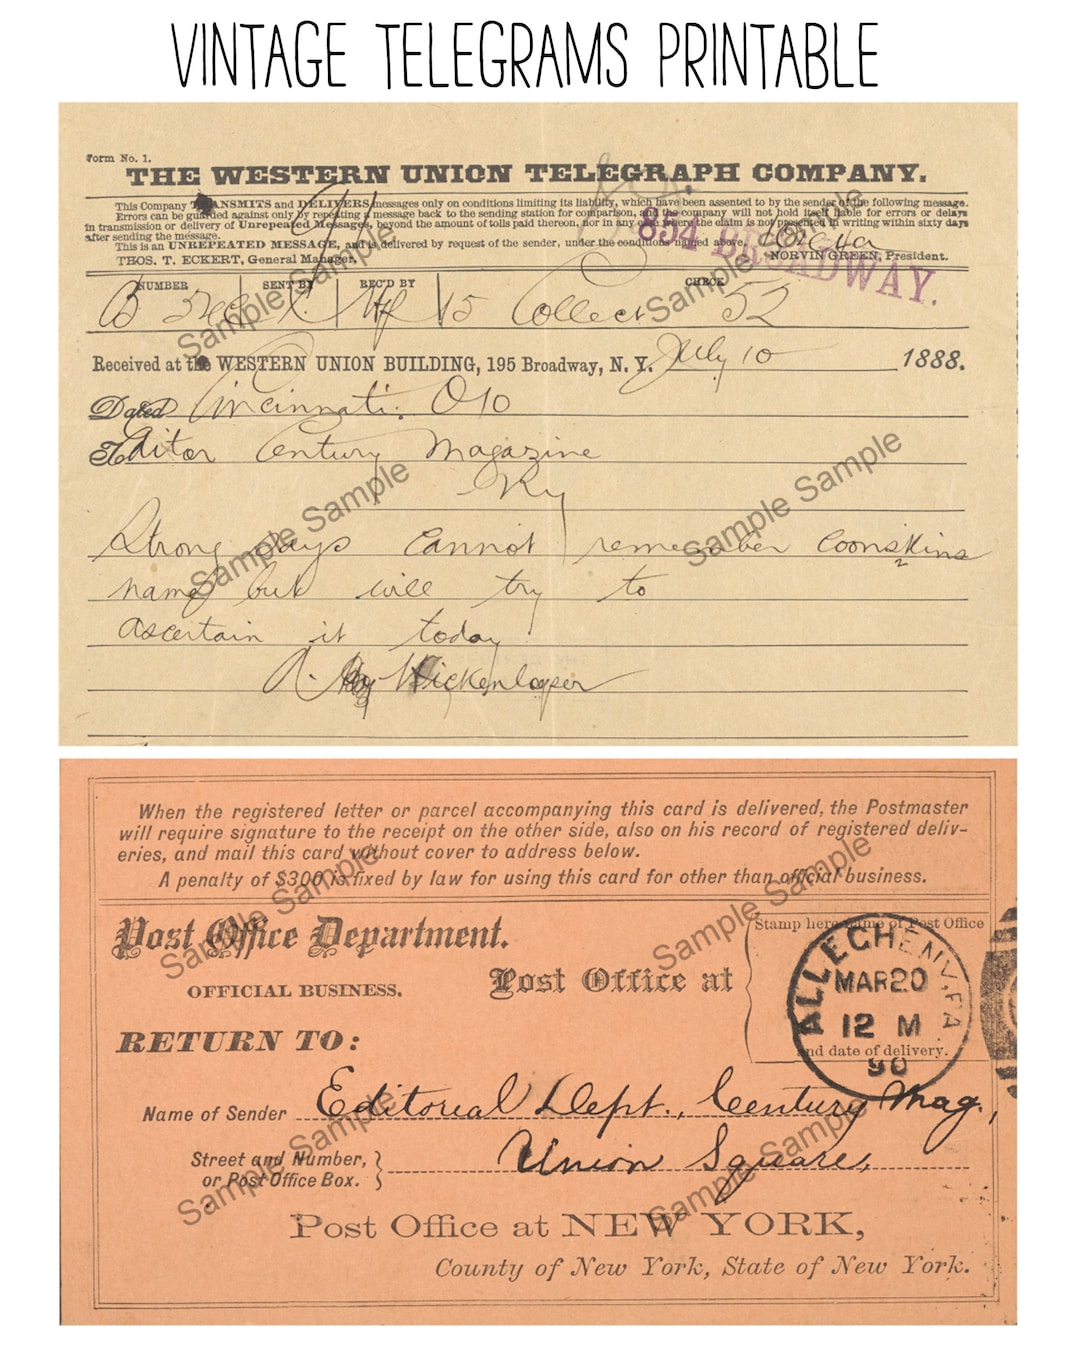 VINTAGE TELEGRAMS PRINTABLE
Form No. 1.
THE WESTERN UNION TELEGRAPH COMPANY.
This Company TRANSMITS and DELIVERS messages only on conditions limiting its liability, which have been assented to by the sender of the following message.
Errors can be guarded against only by repeating a message back to the sending station for comparison, and the company will not hold itself liable for errors or delays
in transmission or delivery of Unrepeated Messages, beyond the amount of tolls paid thereon, nor in any case where the claim is not presented in writing within sixty days
after sending the message.
This is an UNREPEATED MESSAGE, and is delivered by request of the sender, under the conditions named above.
THOS. T. ECKERT, General Manager. NORVIN GREEN, President.
854 BROADWAY.
NUMBER SENT BY REC'D BY CHECK
B 15 Collect 52
Received at the WESTERN UNION BUILDING, 195 Broadway, N. Y. July 10 1888.
Dated Cincinnati. O 10
To Editor Century Magazine
Ny
Strong says cannot remember Coonskins
name but will try to
ascertain it today
Hickenlooper
Sample Sample
Sample Sample
Sample Sample
Sample Sample
When the registered letter or parcel accompanying this card is delivered, the Postmaster
will require signature to the receipt on the other side, also on his record of registered deliv-
eries, and mail this card without cover to address below.
A penalty of $300 is fixed by law for using this card for other than official business.
Post Office Department.
OFFICIAL BUSINESS.
Post Office at
Stamp here name of Post Office
and date of delivery.
ALLEGHENY, PA
MAR 20
12 M
90
RETURN TO:
Name of Sender Editorial Dept., Century Mag.,
Street and Number,
or Post Office Box. } Union Square,
Post Office at NEW YORK,
County of New York, State of New York.
Sample Sample
Sample Sample
Sample Sample
Sample Sample